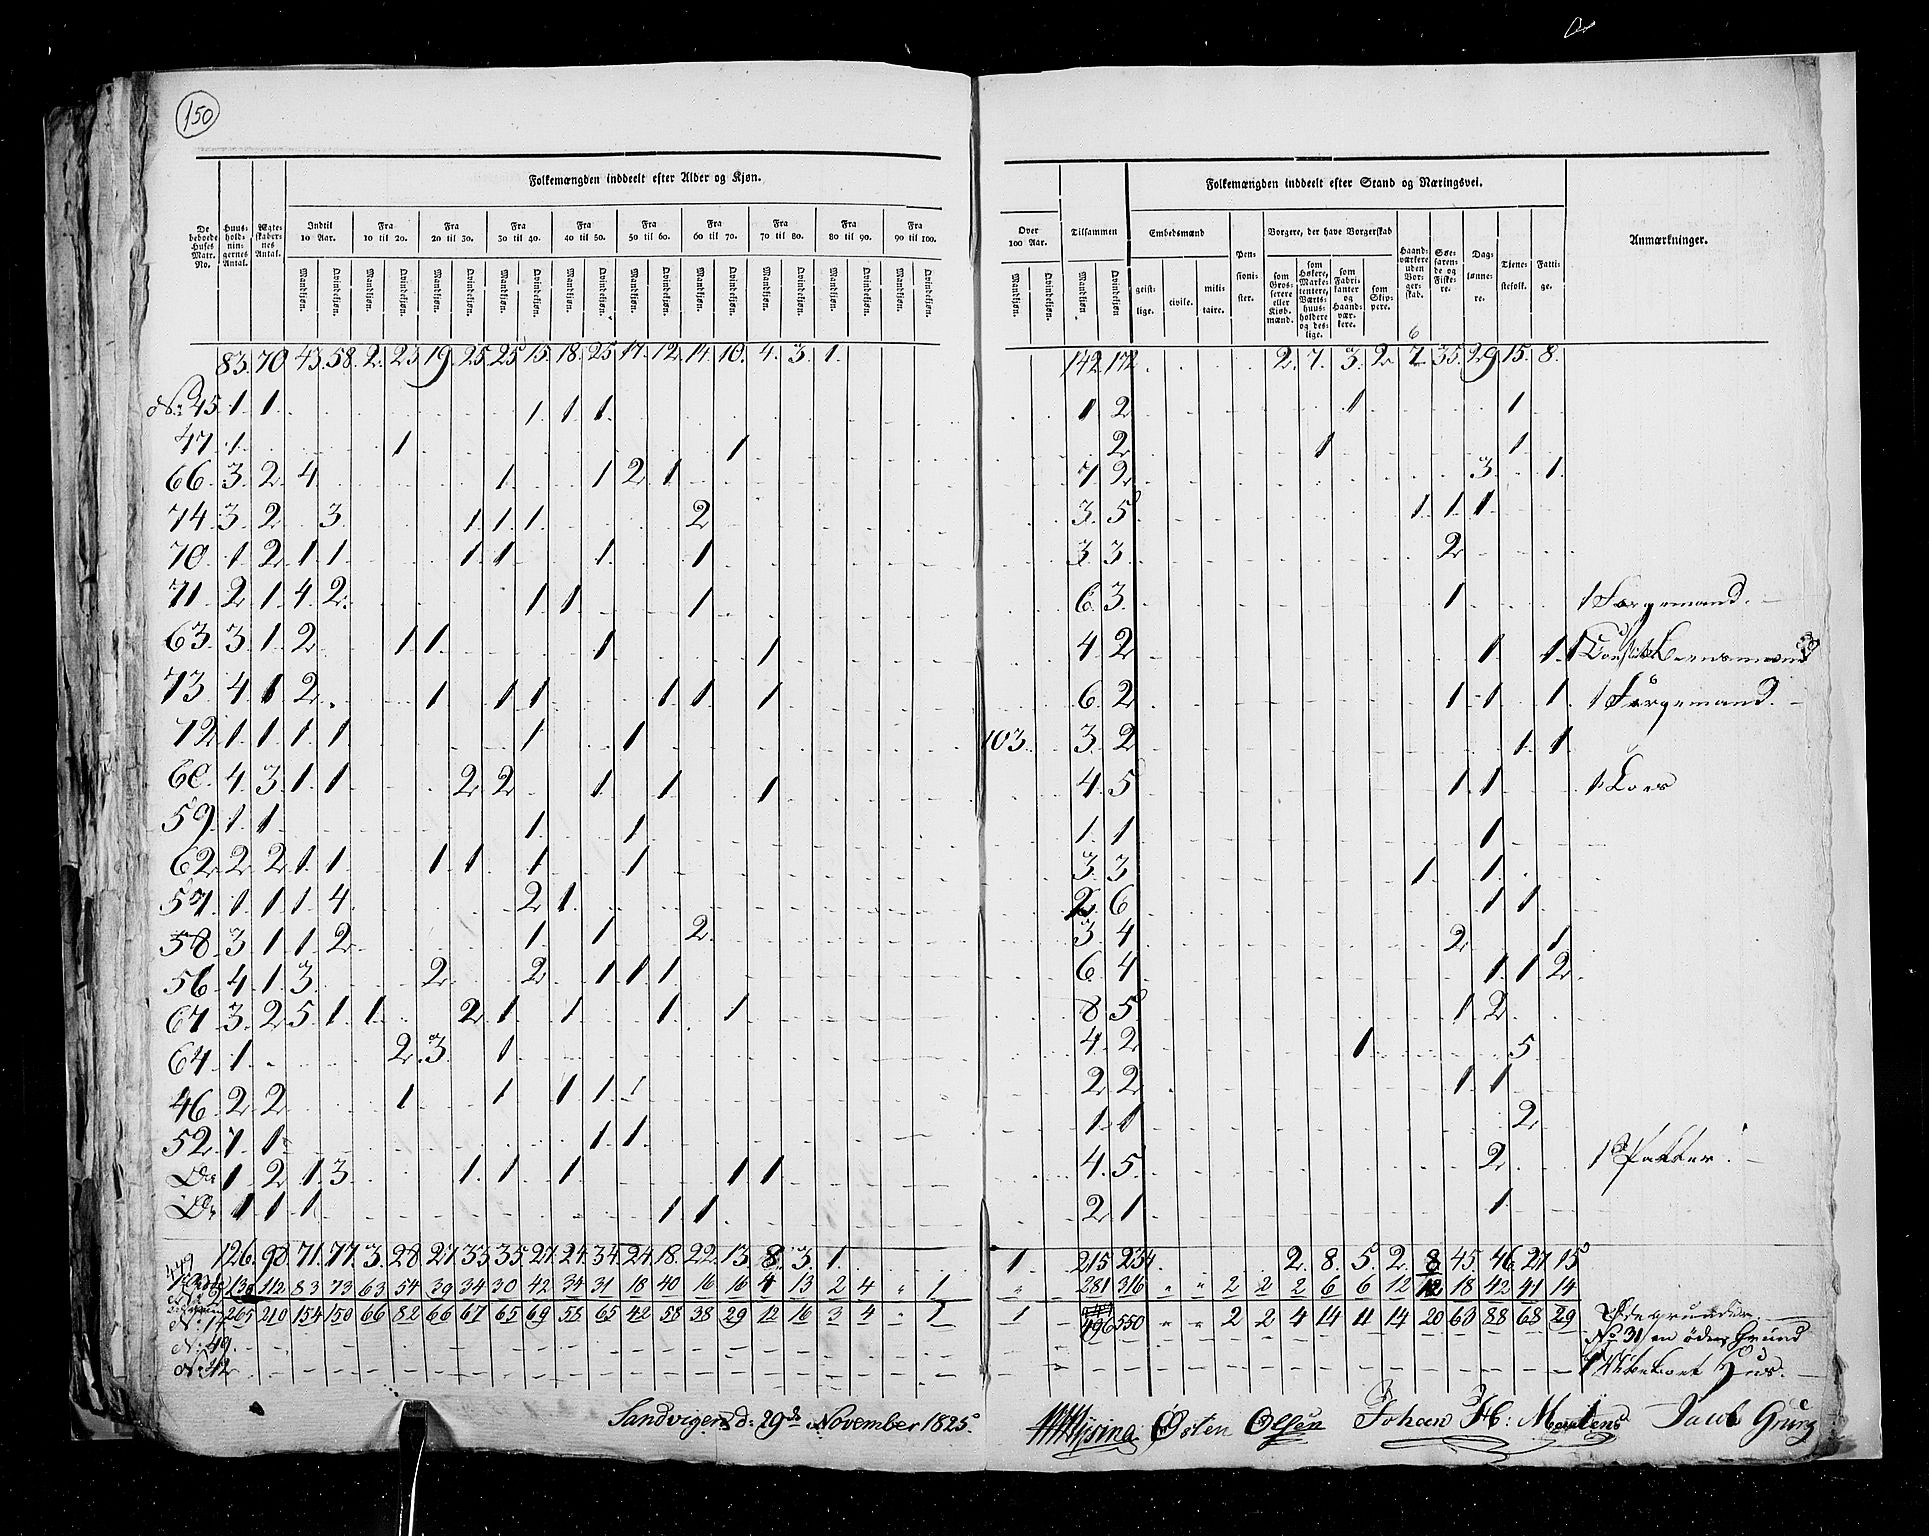 150
Folkemængden inddeelt efter Alder og Kjøn.
De beboede Huses Matr. No.
Huus-hold-nin-gernes Antal.
Ægte-skaber-nes Antal.
Indtil 10 Aar.
Fra 10 til 20.
Fra 20 til 30.
Fra 30 til 40.
Fra 40 til 50.
Fra 50 til 60.
Fra 60 til 70.
Fra 70 til 80.
Fra 80 til 90.
Fra 90 til 100.
Mandkjøn. Qvindekjøn. Mandkjøn. Qvindekjøn. Mandkjøn. Qvindekjøn. Mandkjøn. Qvindekjøn. Mandkjøn. Qvindekjøn. Mandkjøn. Qvindekjøn. Mandkjøn. Qvindekjøn. Mandkjøn. Qvindekjøn. Mandkjøn. Qvindekjøn. Mandkjøn. Qvindekjøn.
Over 100 Aar.
Mandkjøn. Qvindekjøn.
Tilsammen
Mandkjøn Qvindekjøn
Folkemængden inddeelt efter Stand og Næringsvei.
Embedsmænd
geist-lige. civile. mili-taire.
Pen-sioni-ster.
Borgere, der have Borgerskab
som Gros-serere eller Kjøb-mænd.
som Høkere, Marke-tentere, Værts-huus-holdere og des-lige.
som Fabri-kanter og Haand-vær-kere.
som Skip-pere.
Haand-værkere uden Bor-ger-skab.
Søe-faren-de og Fiske-re.
Dag-lønne-re.
Tjene-stefolk.
Fatti-ge.
Anmærkninger.
6
83. 70. 43. 58. 2. 23. 19. 25. 25. 15. 18. 25. 17. 12. 14. 10. 4. 3. 1. 142 172 2. 7. 3. 2. 7. 35. 29. 15. 8.
No. 45. 1. 1. 1. 1. 1. 1 2 1 1.
47. 1. 1. 1. 2 1 1.
66. 3. 2. 4. 1. 1 2. 1. 7. 2. 3. 1.
74. 3. 2. 3. 1. 1. 1. 2 3. 5. 1. 1. 1.
70. 1. 2. 1. 1. 1. 1. 1. 1. 3. 3. 2.
71. 2. 1. 4. 2. 1. 1. 1. 6. 3. 1.
63. 3. 1. 2. 1. 1. 1. 1. 4. 2. 1. 1.
73. 4. 1. 2. 1. 1. 1. 1. 1. 1. 6. 2. 1. 1. 1.
72. 1. 1. 1. 1. 1. 1. 103. 3. 2. 1. 1.
60. 4. 3. 1. 1. 2. 2. 1. 1. 1. 4. 5. 1. 1.
59. 1. 1. 1. 1. 1. 1. 1.
62. 2. 2. 1. 1. 1. 1. 1. 1. 3. 3. 1. 1.
57. 1. 1. 1. 4. 2. 1. 2. 6. 1. 1.
58. 3. 1. 1. 2. 1. 1. 2. 3. 4. 2. 1.
56. 4. 1. 3. 2. 2. 1. 1. 1. 6. 4. 1. 1. 2.
67. 3. 2. 5. 1. 1. 2. 1. 1. 1. 1. 8. 5. 1. 2.
64. 1. 2. 3. 1. 4. 2. 1. 5.
46. 2. 2. 1. 1. 1. 1. 1 2. 2. 1. 1.
52. 1. 1. 1. 1. 1. 1. 2.
Do 1. 2. 1. 3. 1. 1. 1. 1. 1. 4. 5. 2.
Do 1 1 1. 1. 1. 2. 1. 1.
126. 98. 71. 77. 3. 28. 27. 33. 35. 27. 24. 34. 24. 18. 22. 13. 8. 3. 1. 1. 215. 234 2. 8. 5. 2. 8 45. 46. 27. 15
139 112 83 73 63 54 39 34 30 42 34 31 18 40 16 16 4 13 2 4 1 281 316 2 2 2 6 6 12 12 18 42 41 14
265 210 154 150 66 82 66 67 65 69 58 65 42 58 38 29 12 16 3 4 1 1 496 550 2 2 4 14 11 14 20 63 88 68 29
No 49.
No 42
Ødegrunder
No 31 en øde Grund
Sandvigen d: 29de November 1825
Østen Olsen Johan H: Mertens Jacob Grung